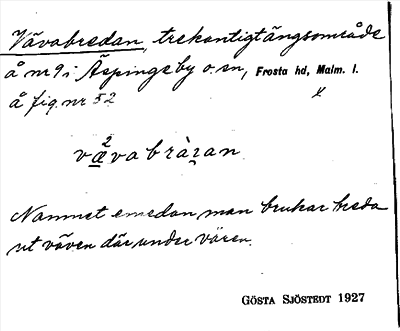 Vävabredan, trekantigt ängsområde
å nr 9 i Äspinge by o. sn, Frosta hd, Malm. l.
å fig. nr 52
vævabràran
Namnet emedan man brukar breda
ut väven där under våren.
GÖSTA SJÖSTEDT 1927